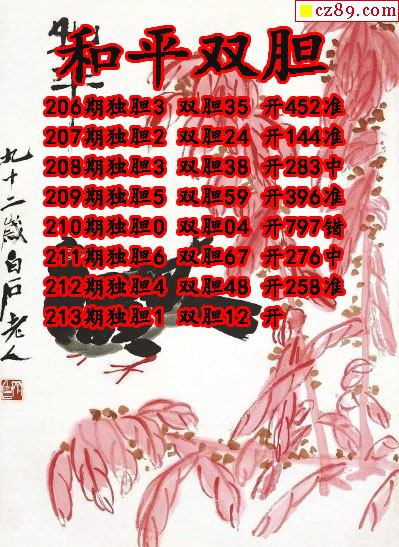 cz89.com
和平双胆
206期独胆3 双胆35 开452准
207期独胆2 双胆24 开144准
208期独胆3 双胆38 开283中
209期独胆5 双胆59 开396准
210期独胆0 双胆04 开797错
211期独胆6 双胆67 开276中
212期独胆4 双胆48 开258准
213期独胆1 双胆12 开
九十二岁白石老人